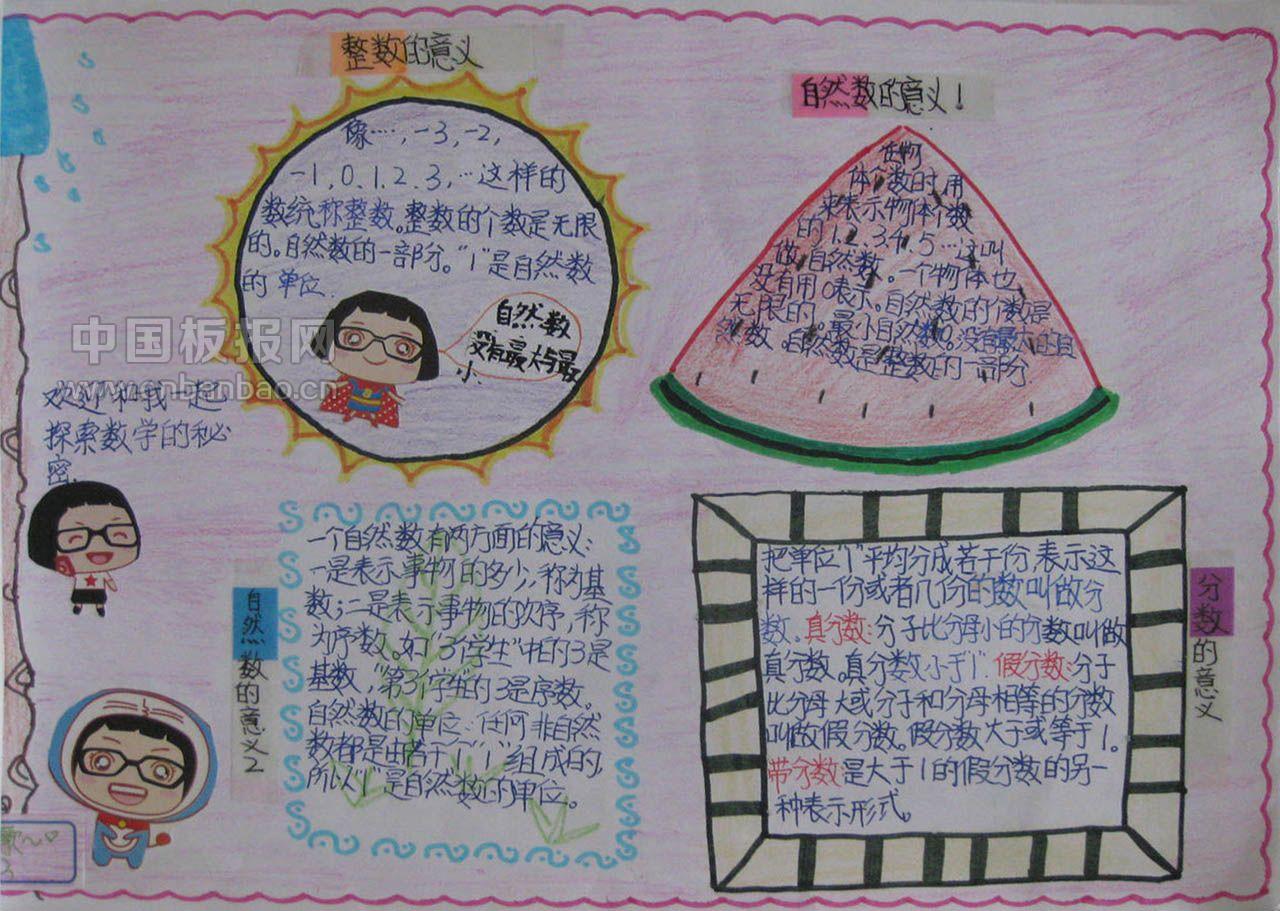 整数的意义
像…,-3,-2,
-1,0.1.2.3,…这样的
数统称整数。整数的个数是无限
的。自然数的一部分。“1”是自然数
的单位.
自然数
没有最大与最
小.
自然数的意义!
在物
体个数时,用
来表示物体个数
的1.2.3.4.5…这叫
做自然数。一个物体也
没有用0表示。自然数的个数是
无限的,最小自然数0。没有最大
然数。自然数是整数的一部分.
中国板报网
www.cnbanbao.cn
欢迎和我一起
探索数学的秘
密.
自然数的意义2
一个自然数有两方面的意义:
一是表示事物的多少,称为基
数;二是表示事物的次序,称
为序数。如“3个学生”中的3是
基数,“第3个学生”的3是序数。
自然数的单位:任何非自然
数都是由若干个“1”组成的,
所以“1”是自然数的单位。
分数的意义
把单位“1”平均分成若干份,表示这
样的一份或者几份的数叫做分
数。真分数:分子比分母小的分数叫做
真分数。真分数小于“1”.假分数:分子
比分母大或分子和分母相等的分数
叫做假分数。假分数大于或等于1。
带分数是大于1的假分数的另一
种表示形式。